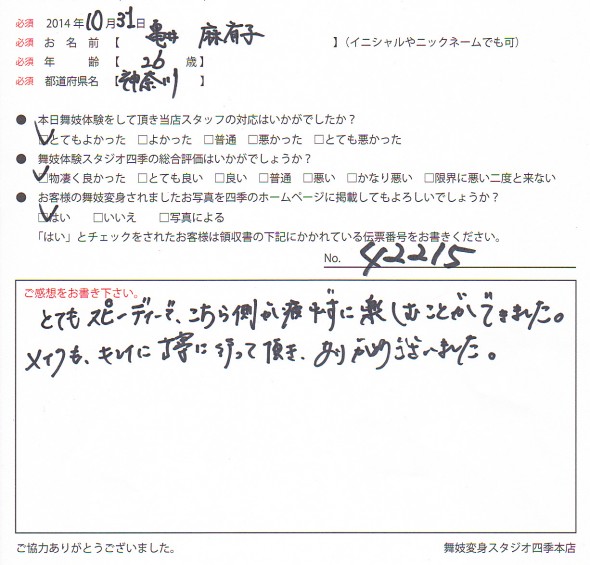 必須 2014年10月31日
必須 お名前【 亀井 麻有子 】(イニシャルやニックネームでも可)
必須 年齢【 26 歳】
必須 都道府県名【 神奈川 】
● 本日舞妓体験をして頂き当店スタッフの対応はいかがでしたか?
☑とてもよかった □よかった □普通 □悪かった □とても悪かった
● 舞妓体験スタジオ四季の総合評価はいかがでしょうか?
☑物凄く良かった □とても良い □良い □普通 □悪い □かなり悪い □限界に悪い二度と来ない
● お客様の舞妓変身されましたお写真を四季のホームページに掲載してもよろしいでしょうか?
☑はい □いいえ □写真による
「はい」とチェックをされたお客様は領収書の下記にかかれている伝票番号をお書きください。
No. 42215
ご感想をお書き下さい。
とてもスピーディーで、こちら側が疲れずに楽しむことができました。
メイクも、キレイに丁寧に行って頂き、ありがとうございました。
ご協力ありがとうございました。 舞妓変身スタジオ四季本店